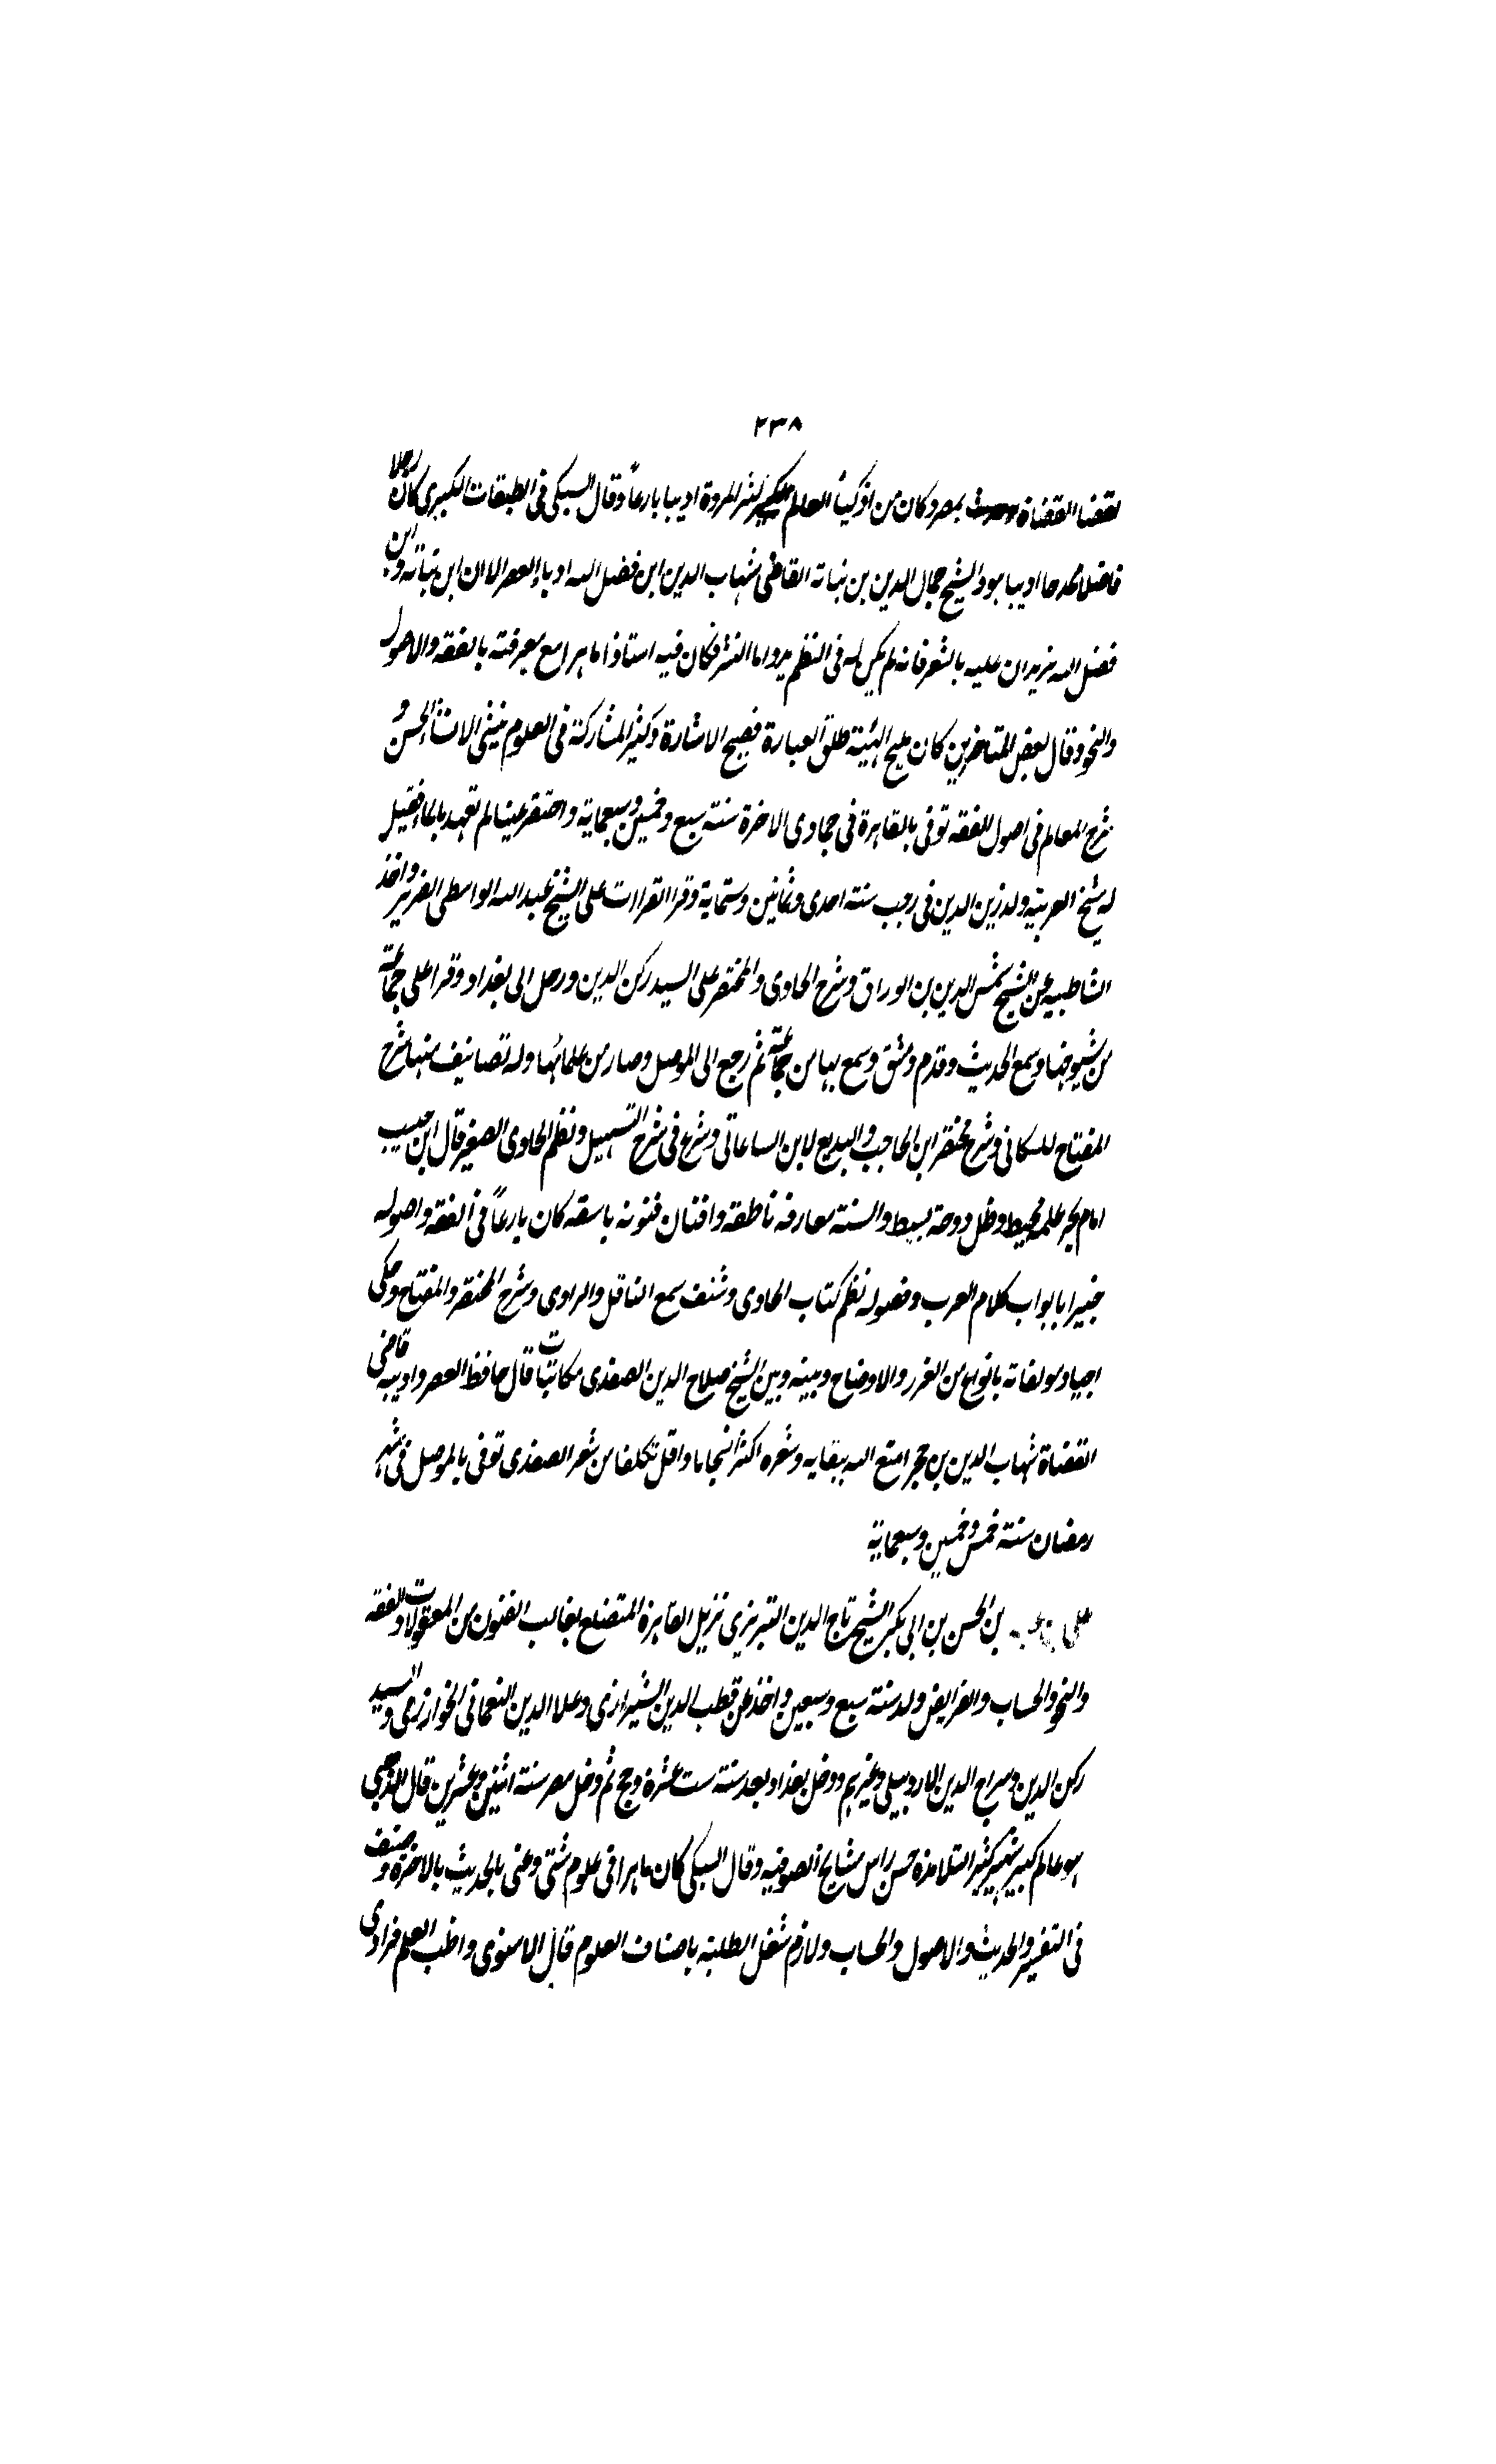 ٢٣٨
لقضا القضاة بمصر وكان من اذكياء العالم كثير المروة اديبا بارعاً وقال السبكى فى الطبقات الكبرى كان رجلا
فاضلا ممدحا اديبا هو والشيخ جمال الدين بن نباتة القاضى شهاب الدين ابن فضل الله ادباء العصر الا ان ابن نباتة وابن
فضل الله يزيدان عليه بالشعر فانه لم يكن له فى النظم يد واما النثر فكان فيه استاذا ماهرا مع معرفته بالفقه والاصول
والنحو وقال بعض المتاخرين كان مليح الهيئة طلق العبارة فصيح الاشارة وكثير المشاركة فى العلوم ينشئ الانشاء الحسن و
شرح المعالم فى اصول الفقه توفى بالقاهرة فى جمادى الاخرة سنة سبع وخمسين وسبعماية واحتقر عينا لم تعهد بالبكاء فقيل
له شيخ العربية ولد زين الدين فى رجب سنة احدى وثمانين وستماية وقرا القراات على الشيخ عبد الله الواسطى الضرير واخذ
الشاطبيه عن الشيخ شمس الدين بن الوراق وشرح الحاوى والمختصر على السيد ركن الدين ورحل الى بغداد وقرا على جماعة
من شيوخها وسمع الحديث وقدم دمشق وسمع بها من جماعة ثم رجع الى الموصل وصار من علمائها وله تصانيف منها شرح
المفتاح للسكاكى وشرح مختصر ابن الحاجب والبديع لابن الساعاتى وشرع فى شرح التسهيل ونظم الحاوى الصغير قال ابن حبيب
امام بحر علمه محيط وظل دوحة بسيط والسنة معارفه ناطقة وافنان فنونه باسقه كان بارعاً فى الفقه واصوله
خبيرا بابواب كلام العرب وفصوله نظم كتاب الحاوى وشنف سمع الناقل والراوى وشرح المختصر والمفتاح وحكى
اجياد مولفاته بانواع من الغرر والاوضاح وبينه وبين الشيخ صلاح الدين الصفدى مكاتبات قال حافظ العصر واديبه قاضى
القضاة شهاب الدين بن حجر امتع الله ببقايه وشعره اكثر انسجاما واقل تكلفا من شعر الصفدى توفى بالموصل فى شهر
رمضان سنة خمس وخمسين وسبعماية
على بن عبد بن الحسن بن ابى بكر الشيخ تاج الدين التبريزى نزيل القاهرة المتضلع بغالب الفنون من المعقولات والفقه
والنحو والحساب والفرايض ولد سنة سبع وسبعين واخذ عن قطب الدين الشيرازى وعلا الدين النعمانى الخوارزمى والسيد
ركن الدين وسراج الدين الاردبيلى وغيرهم ودخل بغداد بعد سنة ست عشرة وحج ثم دخل مصر سنة اثنين وعشرين قال الذهبى
هو عالم كبير شهير كثير التلامذة حسن راس مشايخ الصوفيه وقال السبكى كان ماهرا فى علوم شتى وعنى بالحديث بالاخرة وصنف
فى التفسير والحديث والاصول والحساب ولازم شغل الطلبة باصناف العلوم قال الاسنوى واظب العلم فرادى